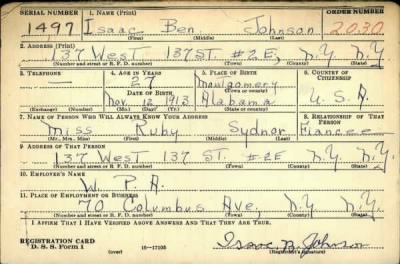 SERIAL NUMBER 1. NAME (Print) ORDER NUMBER
1497 Isaac Ben Johnson 2030
(First) (Middle) (Last)
2. ADDRESS (Print)
137 West 137 ST. #2E, N.Y N.Y
(Number and street or R. F. D. number) (Town) (County) (State)
3. TELEPHONE 4. AGE IN YEARS 5. PLACE OF BIRTH 6. COUNTRY OF CITIZENSHIP
— 27 Montgomery
DATE OF BIRTH (Town or county)
Nov. 12, 1913 Alabama U.S.A.
(Exchange) (Number) (Mo.) (Day) (Yr.) (State or country)
7. NAME OF PERSON WHO WILL ALWAYS KNOW YOUR ADDRESS 8. RELATIONSHIP OF THAT PERSON
Miss Ruby Sydnor Fiancee
(Mr., Mrs., Miss) (First) (Middle) (Last)
9. ADDRESS OF THAT PERSON
137 West 137 ST. #2E N.Y. N.Y.
(Number and street or R. F. D. number) (Town) (County) (State)
10. EMPLOYER'S NAME
W.P.A.
11. PLACE OF EMPLOYMENT OR BUSINESS
70 Columbus Ave, N.Y N.Y.
(Number and street or R. F. D. number) (Town) (County) (State)
I AFFIRM THAT I HAVE VERIFIED ABOVE ANSWERS AND THAT THEY ARE TRUE.
REGISTRATION CARD
D. S. S. Form 1 (over) 16—17105 Isaac B. Johnson
(Registrant's signature)